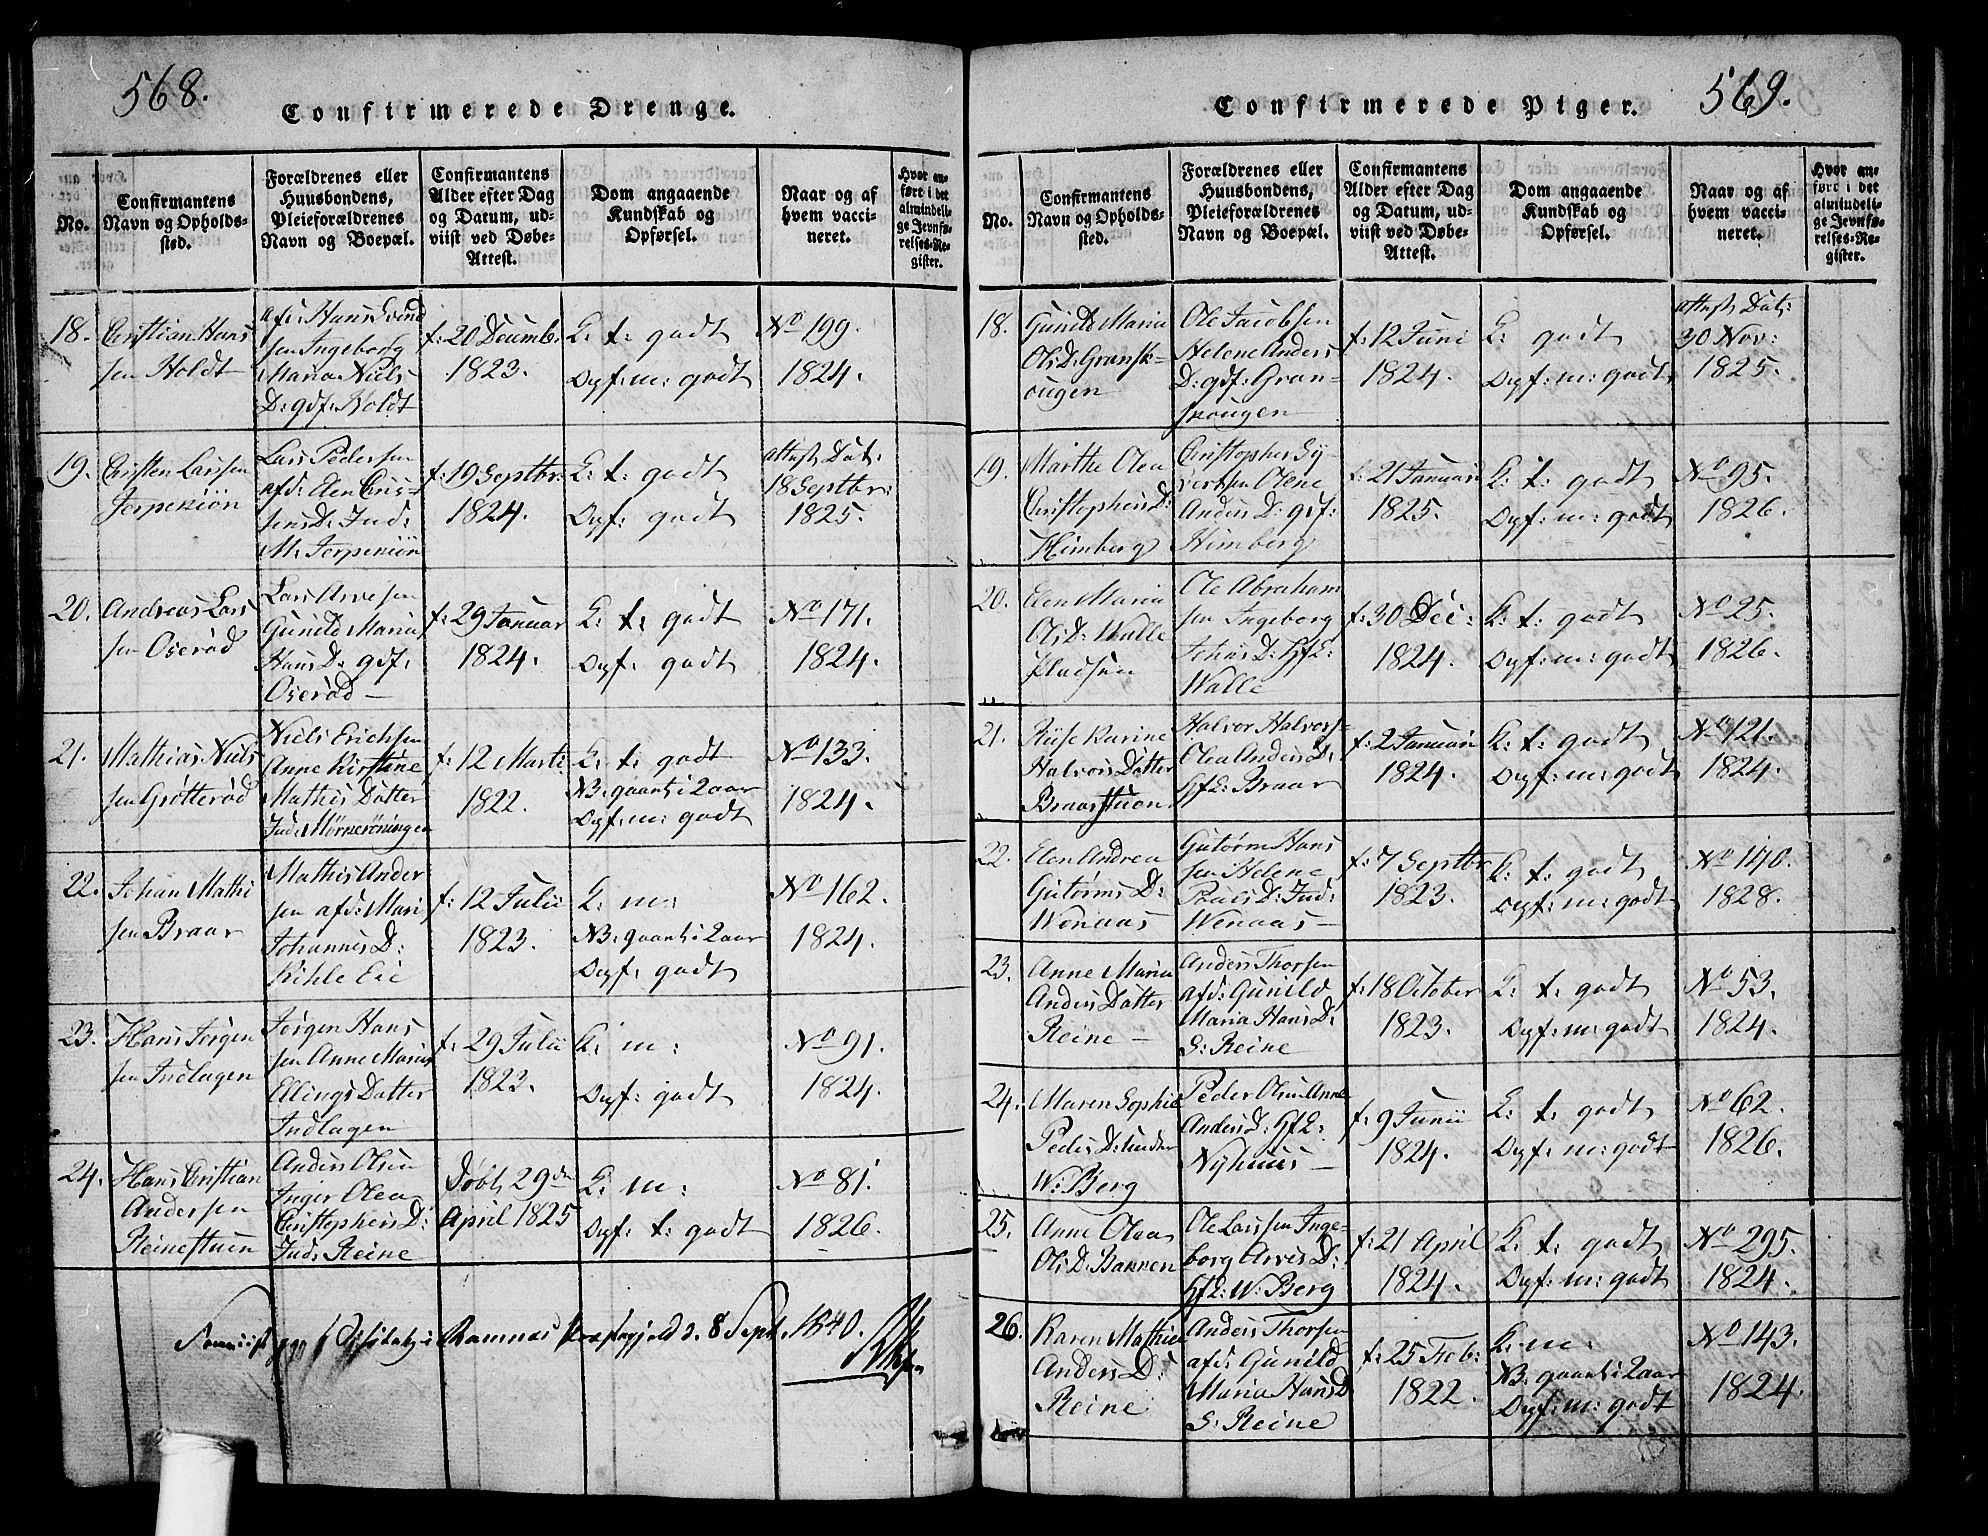 568.
Confirmerede Drenge.
No.
Confirmantens
Navn og Opholds-
sted.
Forældrenes eller
Huusbondens,
Pleieforældrenes
Navn og Boepæl.
Confirmantens
Alder efter Dag
og Datum, ud-
viist ved Døbe-
Attest.
Dom angaaende
Kundskab og
Opførsel.
Naar og af
hvem vacci-
neret.
Hvor an-
ført i det
almindeli-
ge Jevnfø-
relses-Re-
gister.
18.
Christian Hans
sen Holdt
afd: Hans
sen Ingeborg
Maria Niels
D: gdf: Holdt
f: 20 Decemb:
1823.
K: t: godt
Opf: m: godt
No 199.
1824.
19.
Christen Larssen
Jerpekiön
Lars Pedersen
afd: Elen Chris-
tens D: Ind:
M: Jerpekiön
f: 19 Septbr:
1824.
K: t: godt
Opf: godt
attest Dat:
18 Septbr:
1825.
20.
Andreas Lars
sen Oserød
Lars Arvesen
Gunild Maria
Hans D: gdf:
Oserød
f: 29 Januar
1824.
K: t: godt
Opf: godt
No 171.
1824.
21.
Mathias Niels
sen Grötterød
Niels Erichsen
Anne Kirstine
Mathis Datter
Ind:
f: 12 Marti
1822.
K: t: godt
NB: gaaet i 2 aar
Opf: m: godt
No 133.
1824.
22.
Johan Mathi
sen Braar
Mathis Ander
sen afd: Mari
Johannes D:
Kihle Eie
f: 12 Julii
1823.
K: m:
NB: gaaet i 2 aar
Opf: godt
No 162.
1824.
23.
Hans Jørgen
sen Indlagen
Jørgen Hans
sen Anne Maria
Ellings Datter
Indlagen
f: 29 Julii
1823.
K: m:
Opf: godt
No 91.
1824.
24.
Hans Christian
Andersen
Reinestuen
Anders Olsen
Inger Olea
Christophers D:
Ind: Reine
Döbt 29de
April 1825
K: m:
Opf: t: godt
No 81.
1826.
Ramnæs Præstegjeld d. 8 Sept. 1840.
569.
Confirmerede Piger.
No.
Confirmantens
Navn og Opholds-
sted.
Forældrenes eller
Huusbondens,
Pleieforældrenes
Navn og Boepæl.
Confirmantens
Alder efter Dag
og Datum, ud-
viist ved Døbe-
Attest.
Dom angaaende
Kundskab og
Opførsel.
Naar og af
hvem vacci-
neret.
Hvor an-
ført i det
almindeli-
ge Jevnfø-
relses-Re-
gister.
18.
Gunild Maria
Ols D: Gransk-
ougen
Ole Jacobsen
Helene Anders
D: gdf: Gran-
skougen
f: 12 Juni
1824.
K: godt
Opf: m: godt
attest Dat:
30 Nov:
1825.
19.
Marthe Olea
Christophers D:
Himberg
Christopher Sy-
vertsen Olene
Anders D: gdf:
Himberg
f: 21 Januari
1825.
K: t: godt
Opf: m: godt
No 95.
1826.
20.
Elen Maria
Ols D: Walle
pladsen
Ole Abraham
sen Ingeborg
Johans D: HfE:
Walle
f: 30 Dec:
1824.
K: t: godt
Opf: m: godt
No 25.
1826.
21.
Karine
Halvors Datter
Braarstuen
Halvor Halvors-
Olea Anders D:
HfE: Braar
f: 2 Januari
1824.
K: t: godt
Opf: m: godt
No 121.
1824.
22.
Elen Andrea
Gutorms D:
Wenaas
Gutorm Hans
sen Helene
Pauls D: Ind:
Wenaas
f: 7 Septbr
1823.
K: t: godt
Opf: m: godt
No 140.
1828.
23.
Anne Maria
Anders Datter
Reine
Anders Thorsen
afd: Gunild
Maria Hans D:
S: Reine
f: 18 October
1823.
K: t: godt
Opf: m: godt
No 53.
1824.
24.
Maren Sophie
Peders D: under
W: Berg
Peder Olsen Anne
Anders D: HfE:
Nyhuus
f: 9 Junii
1824.
K: t: godt
Opf: m: godt
No 62.
1826.
25.
Anne Olea
Ols D: Bakken
Ole Larssen Inge-
borg Arves D:
HfE: W: Berg
f: 21 April
1824.
K: t: godt
Opf: m: godt
No 295.
1824.
26.
Karen Mathia
Anders D:
Reine
Anders Thorsen
afd: Gunild
Maria Hans D
S: Reine
f: 25 Feb:
1822.
K: m:
NB: gaaet i 2 aar
Opf: m: godt
No 143.
1824.